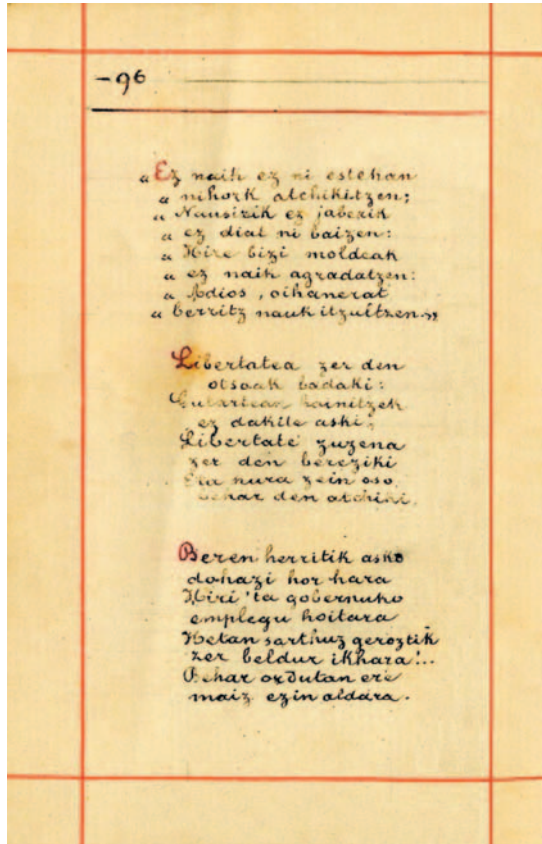 - 96
" Ez naik ez ni estekan
" nihork atchikitzen;
" Nausirik ez jaberik
" ez diat ni baizen:
" Hire bizi moldeak
" ez naik agradatzen:
" Adios, oihanerat
" berritz nauk itzultzen."
Libertatea zer den
otsoak badaki:
hainitzek
ez dakite aski,
Libertate zuzena
zer den bereziki
nura zein oso
behar den atchiki.
Beren herritik asko
dohazi hor hara
Hiri 'ta gobernuko
emplegu hoitara
Hetan sarthuz geroztik
zer beldur ikhara!..
Behar ordutan ere
maiz ezin aldara.